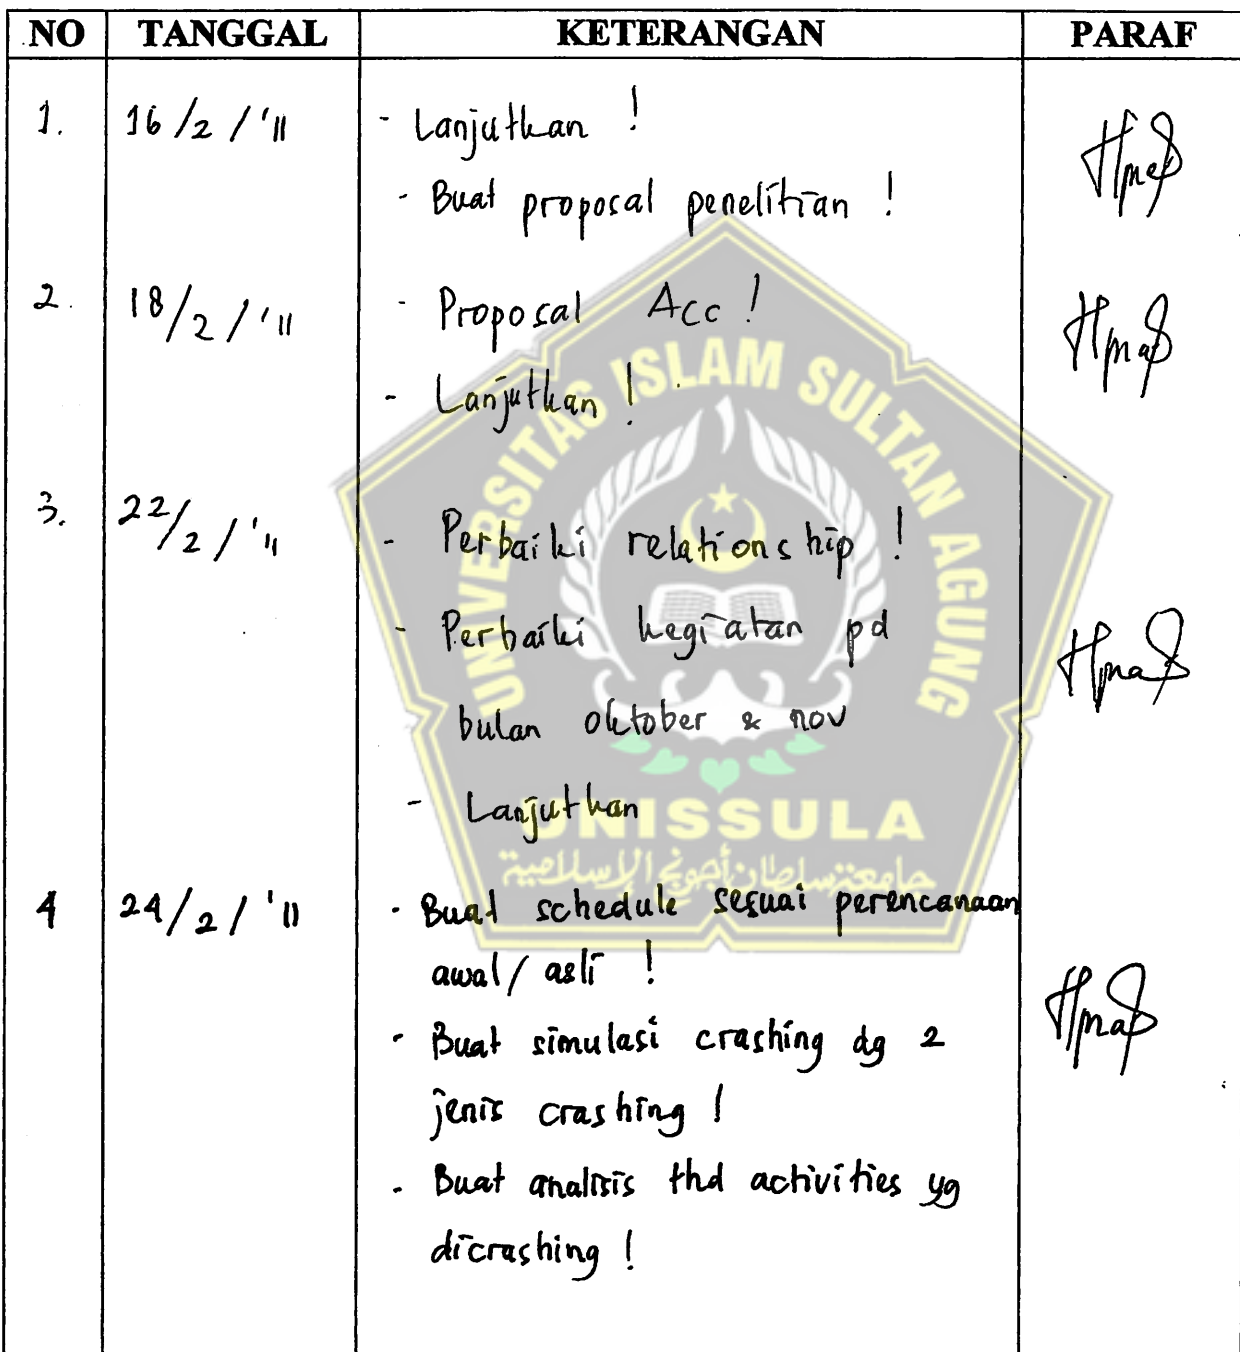 NO TANGGAL KETERANGAN PARAF
1. 16/2/'11 - Lanjutkan !
- Buat proposal penelitian !
2. 18/2/'11 - Proposal Acc !
- Lanjutkan !
3. 22/2/'11 - Perbaiki relationship !
- Perbaiki kegiatan pd
bulan oktober & nov
- Lanjutkan
4 24/2/'11 - Buat schedule sesuai perencanaan
awal/asli !
- Buat simulasi crashing dg 2
jenis crashing !
- Buat analisis thd activities yg
dicrashing !
UNIVERSITAS ISLAM SULTAN AGUNG
UNISSULA
جامعة سلطان أجونج الإسلامية